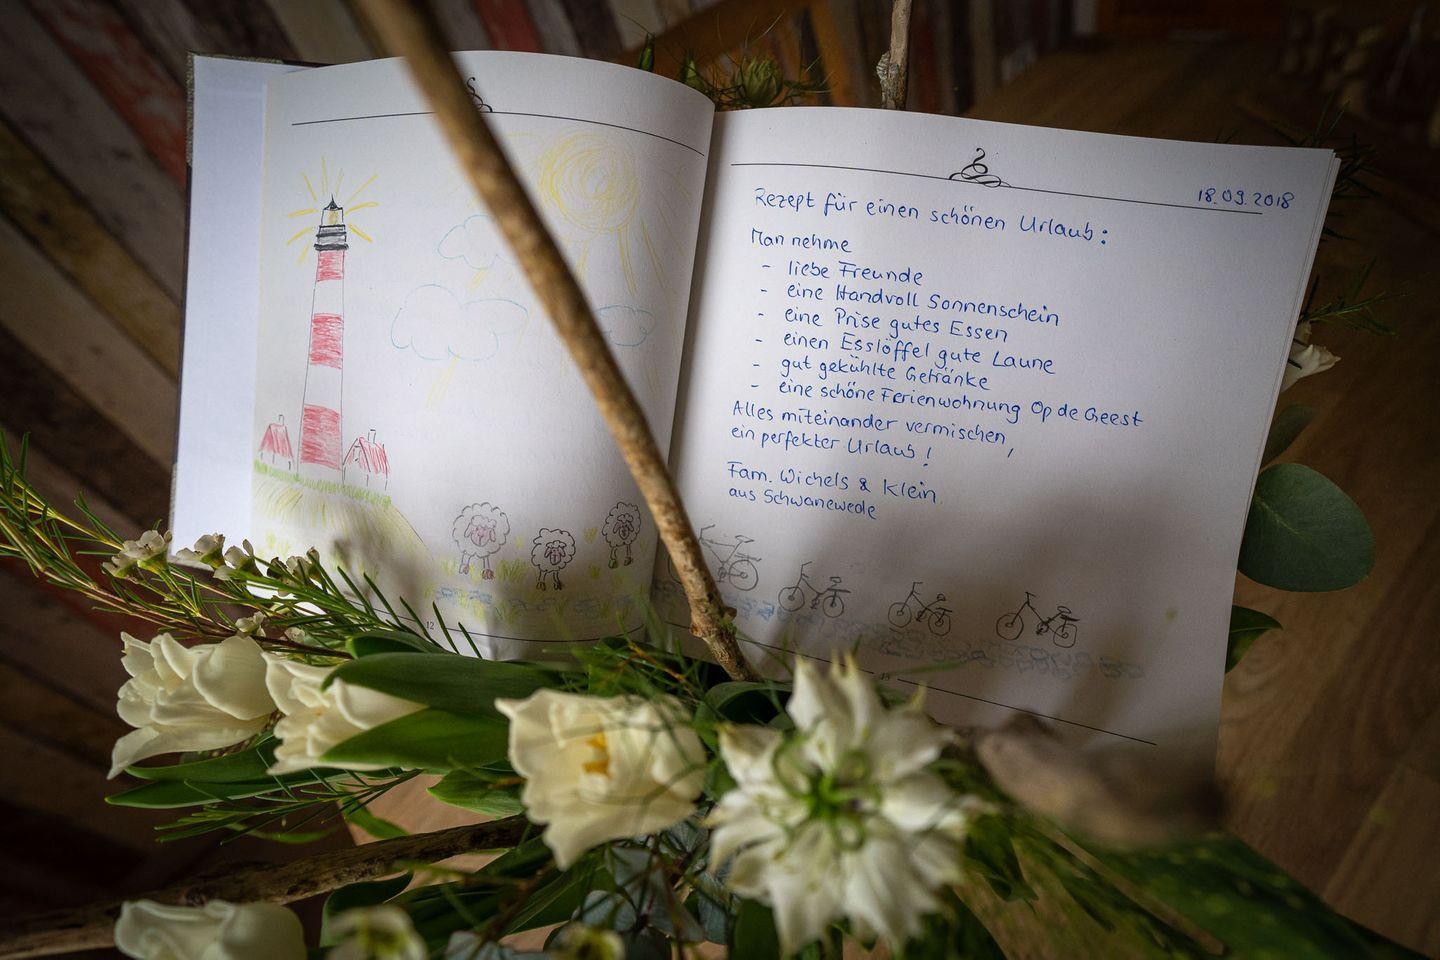 18.09.2018
Rezept für einen schönen Urlaub:
Man nehme
- liebe Freunde
- eine Handvoll Sonnenschein
- eine Prise gutes Essen
- einen Esslöffel gute Laune
- gut gekühlte Getränke
- eine schöne Ferienwohnung Op de Geest
Alles miteinander vermischen,
ein perfekter Urlaub!
Fam. Wichels & Klein
aus Schwanewede
12